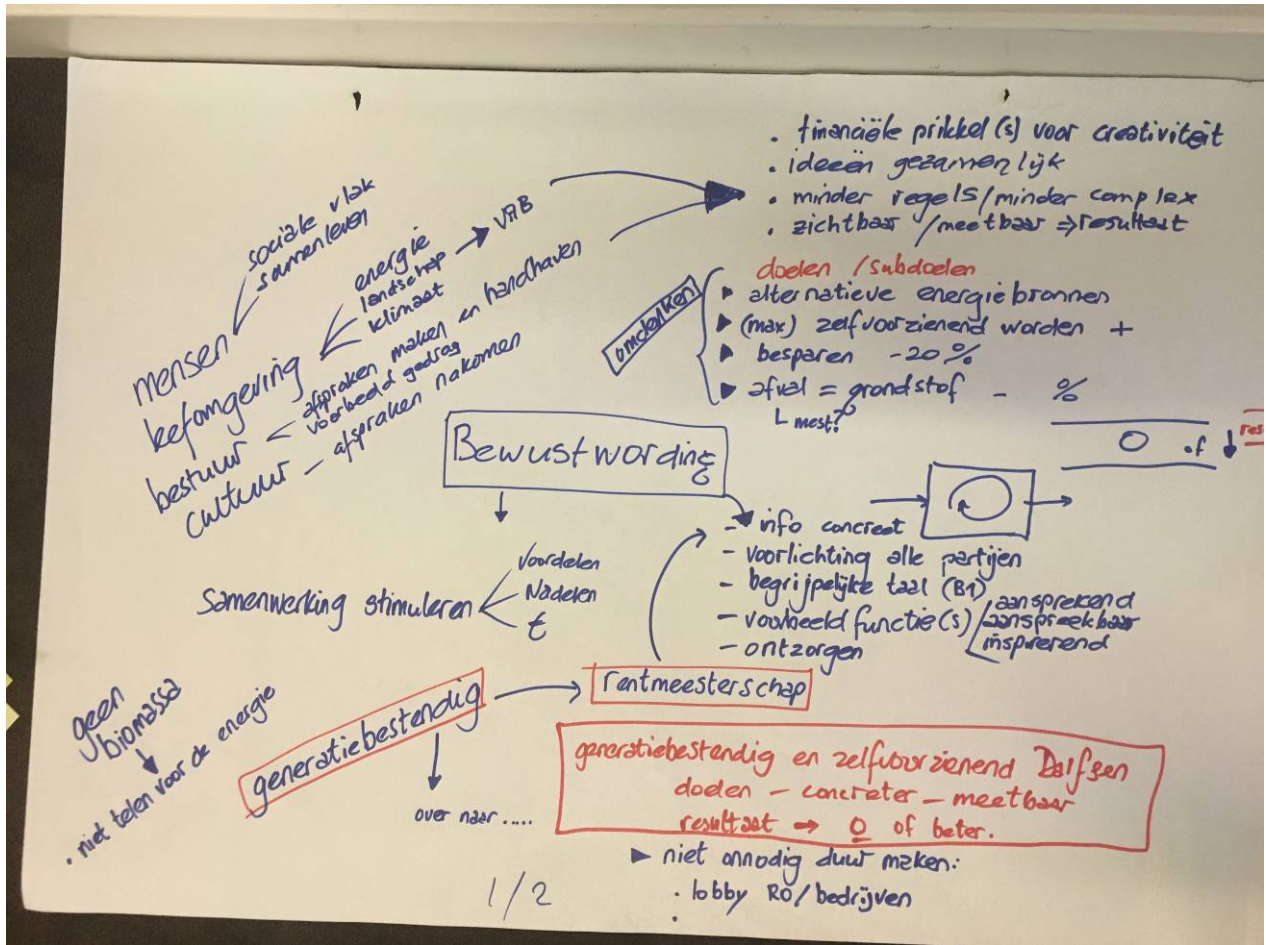 . financiële prikkel(s) voor creativiteit
. ideeën gezamenlijk
. minder regels/minder complex
. zichtbaar /meetbaar ⇒ resultaat
mensen
sociale vlak
samenleven
leefomgeving
energie
landschap → VAB
klimaat
bestuur
afspraken maken en handhaven
voorbeeld gedrag
cultuur – afspraken nakomen
omdenken
doelen /subdoelen
▶ alternatieve energiebronnen
▶ (max) zelfvoorzienend worden +
▶ besparen -20%
▶ afval = grondstof - %
L mest?
O .f ↓
Bewustwording
Samenwerking stimuleren
Voordelen
Nadelen
€
- info concreet
- voorlichting alle partijen
- begrijpelijke taal (B1)
- voorbeeld functie(s)
aansprekend
aanspreekbaar
inspirerend
- ontzorgen
geen
biomassa
. niet telen voor de energie
generatiebestendig → rentmeesterschap
over naar .....
generatiebestendig en zelfvoorzienend Dalfsen
doelen – concreter – meetbaar
resultaat → 0 of beter.
▶ niet onnodig duur maken:
. lobby RO/bedrijven
.
1/2